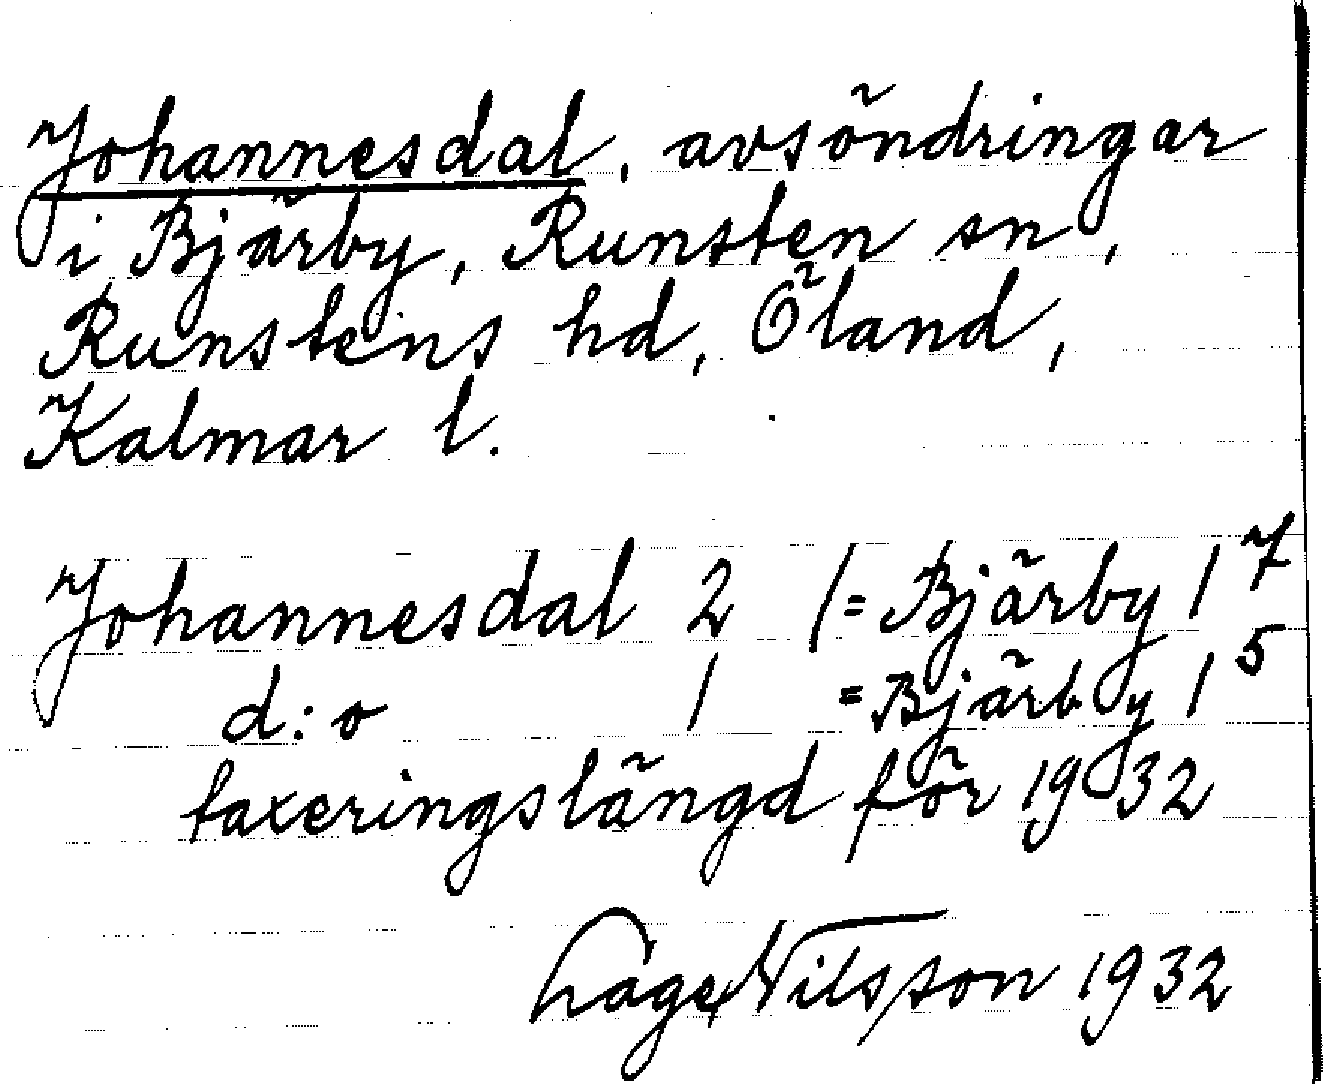 Johannesdal, avsöndringar
i Bjärby, Runsten sn,
Runstens hd, Öland,
Kalmar l.
Johannesdal 2 (= Bjärby 1⁷
d:o 1 = Bjärby 1⁵
taxeringslängd för 1932
Låge Nilsson 1932